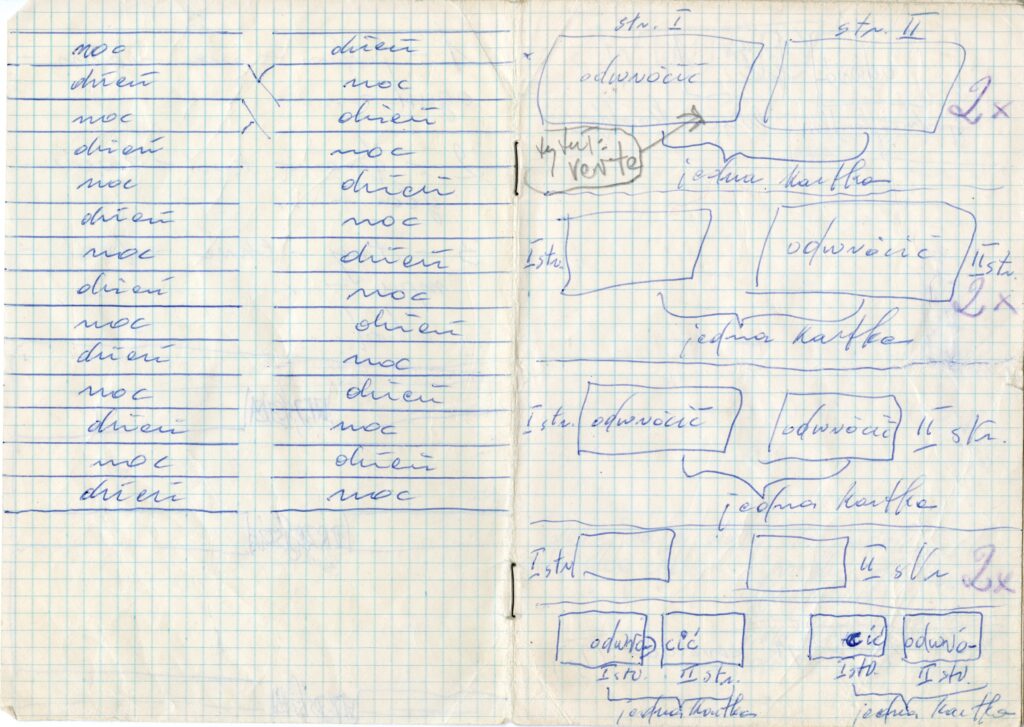 noc dzień
dzień noc
noc dzień
dzień noc
noc dzień
dzień noc
noc dzień
dzień noc
noc dzień
dzień noc
noc dzień
dzień noc
noc dzień
dzień noc
str. I str. II
odwrócić
2x
tytuł:
verte
jedna kartka
I str. odwrócić II str.
2x
jedna kartka
I str. odwrócić odwrócić II str.
jedna kartka
I str II str
2x
odwró- cić cić odwró-
I str. II str. I str. II str.
jedna kartka jedna kartka